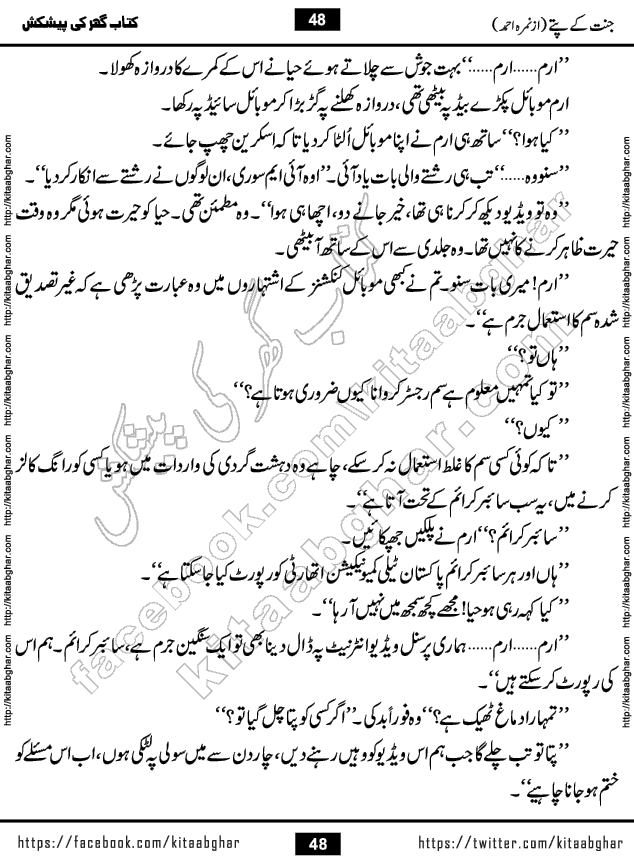 جنت کے پتے (از نمرہ احمد) 48 کتاب گھر کی پیشکش
’’ارم......ارم......‘‘بہت جوش سے چلاتے ہوئے حیا نے اس کے کمرے کا دروازہ کھولا۔
ارم موبائل پکڑے بیڈ پہ بیٹھی تھی، دروازہ کھلنے پہ گڑبڑا کر موبائل سائیڈ پہ رکھا۔
’’کیا ہوا؟‘‘ ساتھ ہی ارم نے اپنا موبائل اُلٹا کر دیا تاکہ اسکرین چھپ جائے۔
’’سنو وہ.....‘‘ تب ہی رشتے والی بات یاد آئی۔ ’’اوہ آئی ایم سوری، ان لوگوں نے رشتے سے انکار کر دیا‘‘۔
’’وہ تو ویڈیو دیکھ کر کرنا ہی تھا، خیر جانے دو، اچھا ہی ہوا‘‘۔ وہ مطمئن تھی۔ حیا کو حیرت ہوئی مگر وہ وقت
حیرت ظاہر کرنے کا نہیں تھا۔ وہ جلدی سے اس کے ساتھ آ بیٹھی۔
’’ارم! میری بات سنو۔ تم نے کبھی موبائل کنکشنز کے اشتہاروں میں وہ عبارت پڑھی ہے کہ غیر تصدیق
شدہ سم کا استعمال جرم ہے‘‘۔
’’ہاں تو؟‘‘
’’تو کیا تمہیں معلوم ہے سم رجسٹر کروانا کیوں ضروری ہوتا ہے؟‘‘
’’کیوں؟‘‘
’’تاکہ کوئی کسی سم کا غلط استعمال نہ کر سکے، چاہے وہ دہشت گردی کی واردات میں ہو یا کسی کو رانگ کالز
کرنے میں، یہ سب سائبر کرائم کے تحت آتا ہے‘‘۔
’’سائبر کرائم؟‘‘ ارم نے پلکیں جھپکائیں۔
’’ہاں اور ہر سائبر کرائم پاکستان ٹیلی کمیونیکیشن اتھارٹی کو رپورٹ کیا جا سکتا ہے‘‘۔
’’کیا کہہ رہی ہو حیا! مجھے کچھ سمجھ میں نہیں آ رہا‘‘۔
’’ارم......ارم...... ہماری پرسنل ویڈیو انٹرنیٹ پہ ڈال دینا بھی تو ایک سنگین جرم ہے، سائبر کرائم۔ ہم اس
کی رپورٹ کر سکتے ہیں‘‘۔
’’تمہارا دماغ ٹھیک ہے؟‘‘ وہ فوراً بدکی۔ ’’اگر کسی کو پتا چل گیا تو؟‘‘
’’پتا تو تب چلے گا جب ہم اس ویڈیو کو وہیں رہنے دیں، چار دن سے میں سولی پہ لٹکی ہوں، اب اس مسئلے کو
ختم ہو جانا چاہیے‘‘۔
http://kitaabghar.com http://kitaabghar.com http://kitaabghar.com http://kitaabghar.com http://kitaabghar.com http://kitaabghar.com
http://kitaabghar.com http://kitaabghar.com http://kitaabghar.com http://kitaabghar.com http://kitaabghar.com http://kitaabghar.com
کتاب گھر کی پیشکش
facebook.com/kitaabghar
kitaabghar.com
https://facebook.com/kitaabghar 48 https://twitter.com/kitaabghar